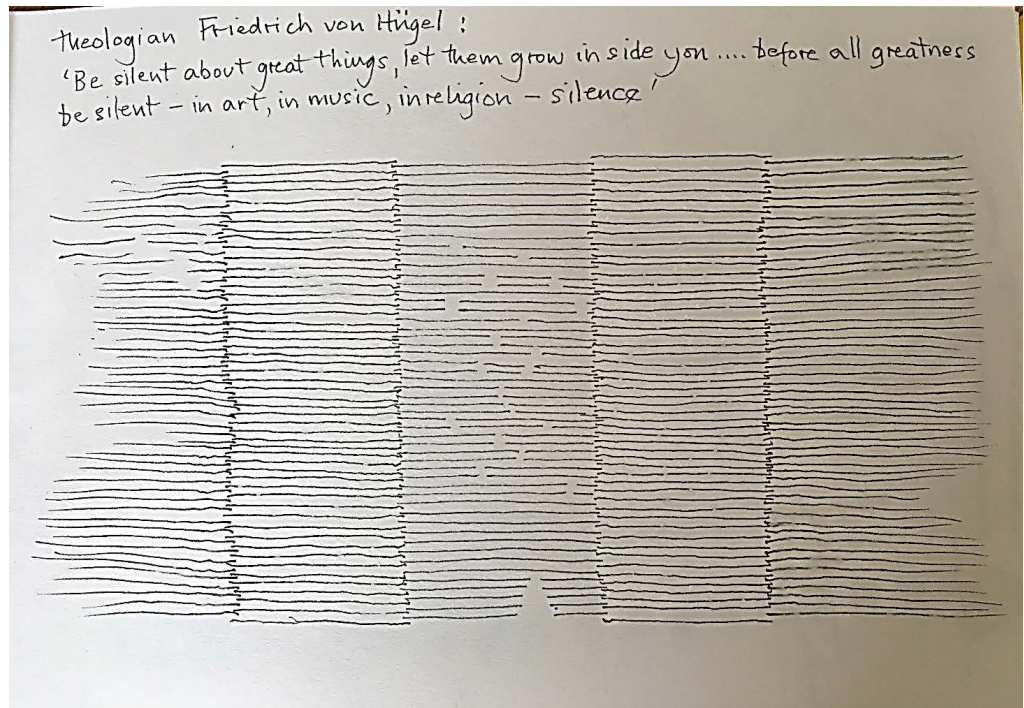 theologian Friedrich von Hügel :
'Be silent about great things, let them grow inside you .... before all greatness
be silent – in art, in music, in religion – silence'